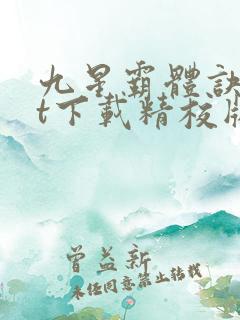 九星霸體訣
t下載精校版
曾益新
未经同意禁止转载